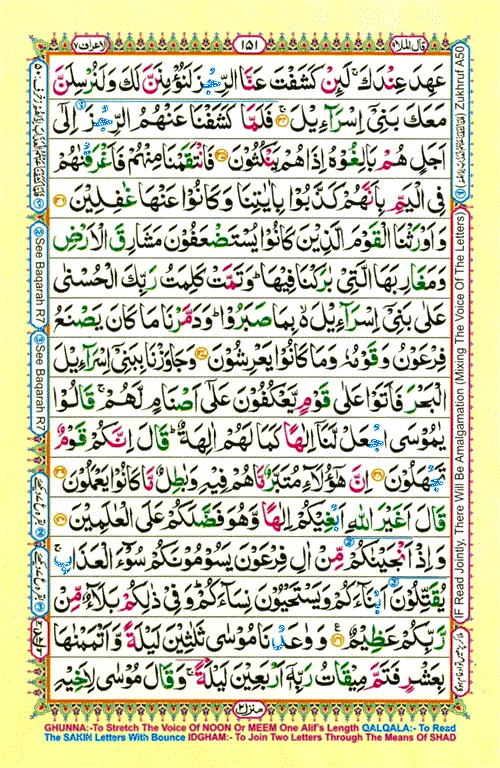 قال الملا ۹
١٥١
الاعراف ٧
عَهِدَ عِنْدَكَ ۚ لَئِنْ كَشَفْتَ عَنَّا الرِّجْزَ لَنُؤْمِنَنَّ لَكَ وَلَنُرْسِلَنَّ
مَعَكَ بَنِیْۤ اِسْرَآءِیْلَ ۚ فَلَمَّا كَشَفْنَا عَنْهُمُ الرِّجْزَ اِلٰۤی
اَجَلٍ هُمْ بٰلِغُوْهُ اِذَا هُمْ یَنْكُثُوْنَ فَانْتَقَمْنَا مِنْهُمْ فَاَغْرَقْنٰهُمْ
فِی الْیَمِّ بِاَنَّهُمْ كَذَّبُوْا بِاٰیٰتِنَا وَكَانُوْا عَنْهَا غٰفِلِیْنَ
وَاَوْرَثْنَا الْقَوْمَ الَّذِیْنَ كَانُوْا یُسْتَضْعَفُوْنَ مَشَارِقَ الْاَرْضِ
وَمَغَارِبَهَا الَّتِیْ بٰرَكْنَا فِیْهَا ؕ وَتَمَّتْ كَلِمَتُ رَبِّكَ الْحُسْنٰی
عَلٰی بَنِیْۤ اِسْرَآءِیْلَ ۙ بِمَا صَبَرُوْا ؕ وَدَمَّرْنَا مَا كَانَ یَصْنَعُ
فِرْعَوْنُ وَقَوْمُهٗ وَمَا كَانُوْا یَعْرِشُوْنَ وَجٰوَزْنَا بِبَنِیْۤ اِسْرَآءِیْلَ
الْبَحْرَ فَاَتَوْا عَلٰی قَوْمٍ یَّعْكُفُوْنَ عَلٰۤی اَصْنَامٍ لَّهُمْ ۚ قَالُوْا
یٰمُوْسَی اجْعَلْ لَّنَاۤ اِلٰهًا كَمَا لَهُمْ اٰلِهَةٌ ؕ قَالَ اِنَّكُمْ قَوْمٌ
تَجْهَلُوْنَ اِنَّ هٰۤؤُلَآءِ مُتَبَّرٌ مَّا هُمْ فِیْهِ وَبٰطِلٌ مَّا كَانُوْا یَعْمَلُوْنَ
قَالَ اَغَیْرَ اللّٰهِ اَبْغِیْكُمْ اِلٰهًا وَّهُوَ فَضَّلَكُمْ عَلَی الْعٰلَمِیْنَ
وَاِذْ اَنْجَیْنٰكُمْ مِّنْ اٰلِ فِرْعَوْنَ یَسُوْمُوْنَكُمْ سُوْٓءَ الْعَذَابِ ۚ
یُقَتِّلُوْنَ اَبْنَآءَكُمْ وَیَسْتَحْیُوْنَ نِسَآءَكُمْ ؕ وَفِیْ ذٰلِكُمْ بَلَآءٌ مِّنْ
رَّبِّكُمْ عَظِیْمٌ وَوٰعَدْنَا مُوْسٰی ثَلٰثِیْنَ لَیْلَةً وَّاَتْمَمْنٰهَا
بِعَشْرٍ فَتَمَّ مِیْقَاتُ رَبِّهٖۤ اَرْبَعِیْنَ لَیْلَةً ۚ وَقَالَ مُوْسٰی لِاَخِیْهِ
منزل ٢
① Zukhruf A50
IF Read Jointly, There Will Be Amalgamation (Mixing The Voice Of The Letters)
② See Baqarah R7
③ See Baqarah R7
GHUNNA:-To Stretch The Voice Of NOON Or MEEM One Alif's Length QALQALA:- To Read
The SAKIN Letters With Bounce IDGHAM:- To Join Two Letters Through The Means Of SHAD